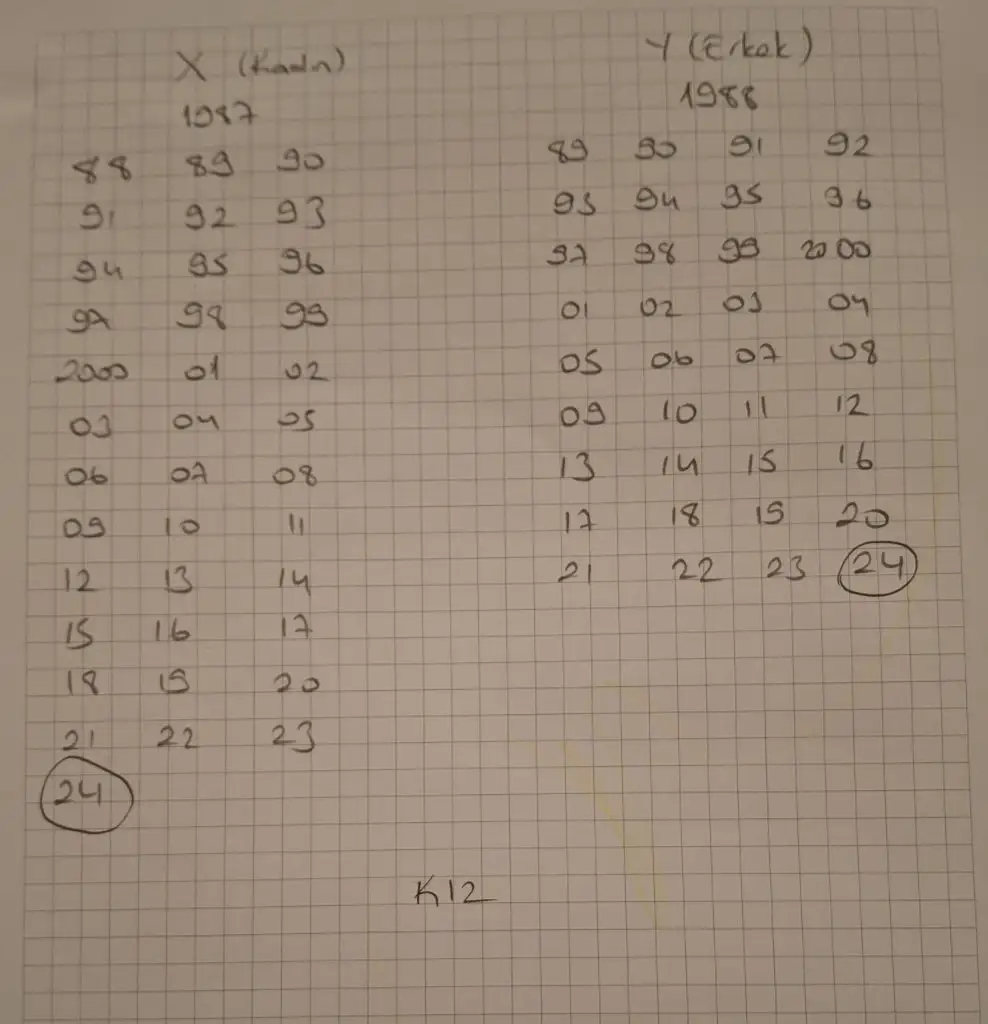 X (Kadın)
1987
88 89 90
91 92 93
94 95 96
97 98 99
2000 01 02
03 04 05
06 07 08
09 10 11
12 13 14
15 16 17
18 19 20
21 22 23
24
Y (Erkek)
1988
89 90 91 92
93 94 95 96
97 98 99 2000
01 02 03 04
05 06 07 08
09 10 11 12
13 14 15 16
17 18 19 20
21 22 23 24
K12